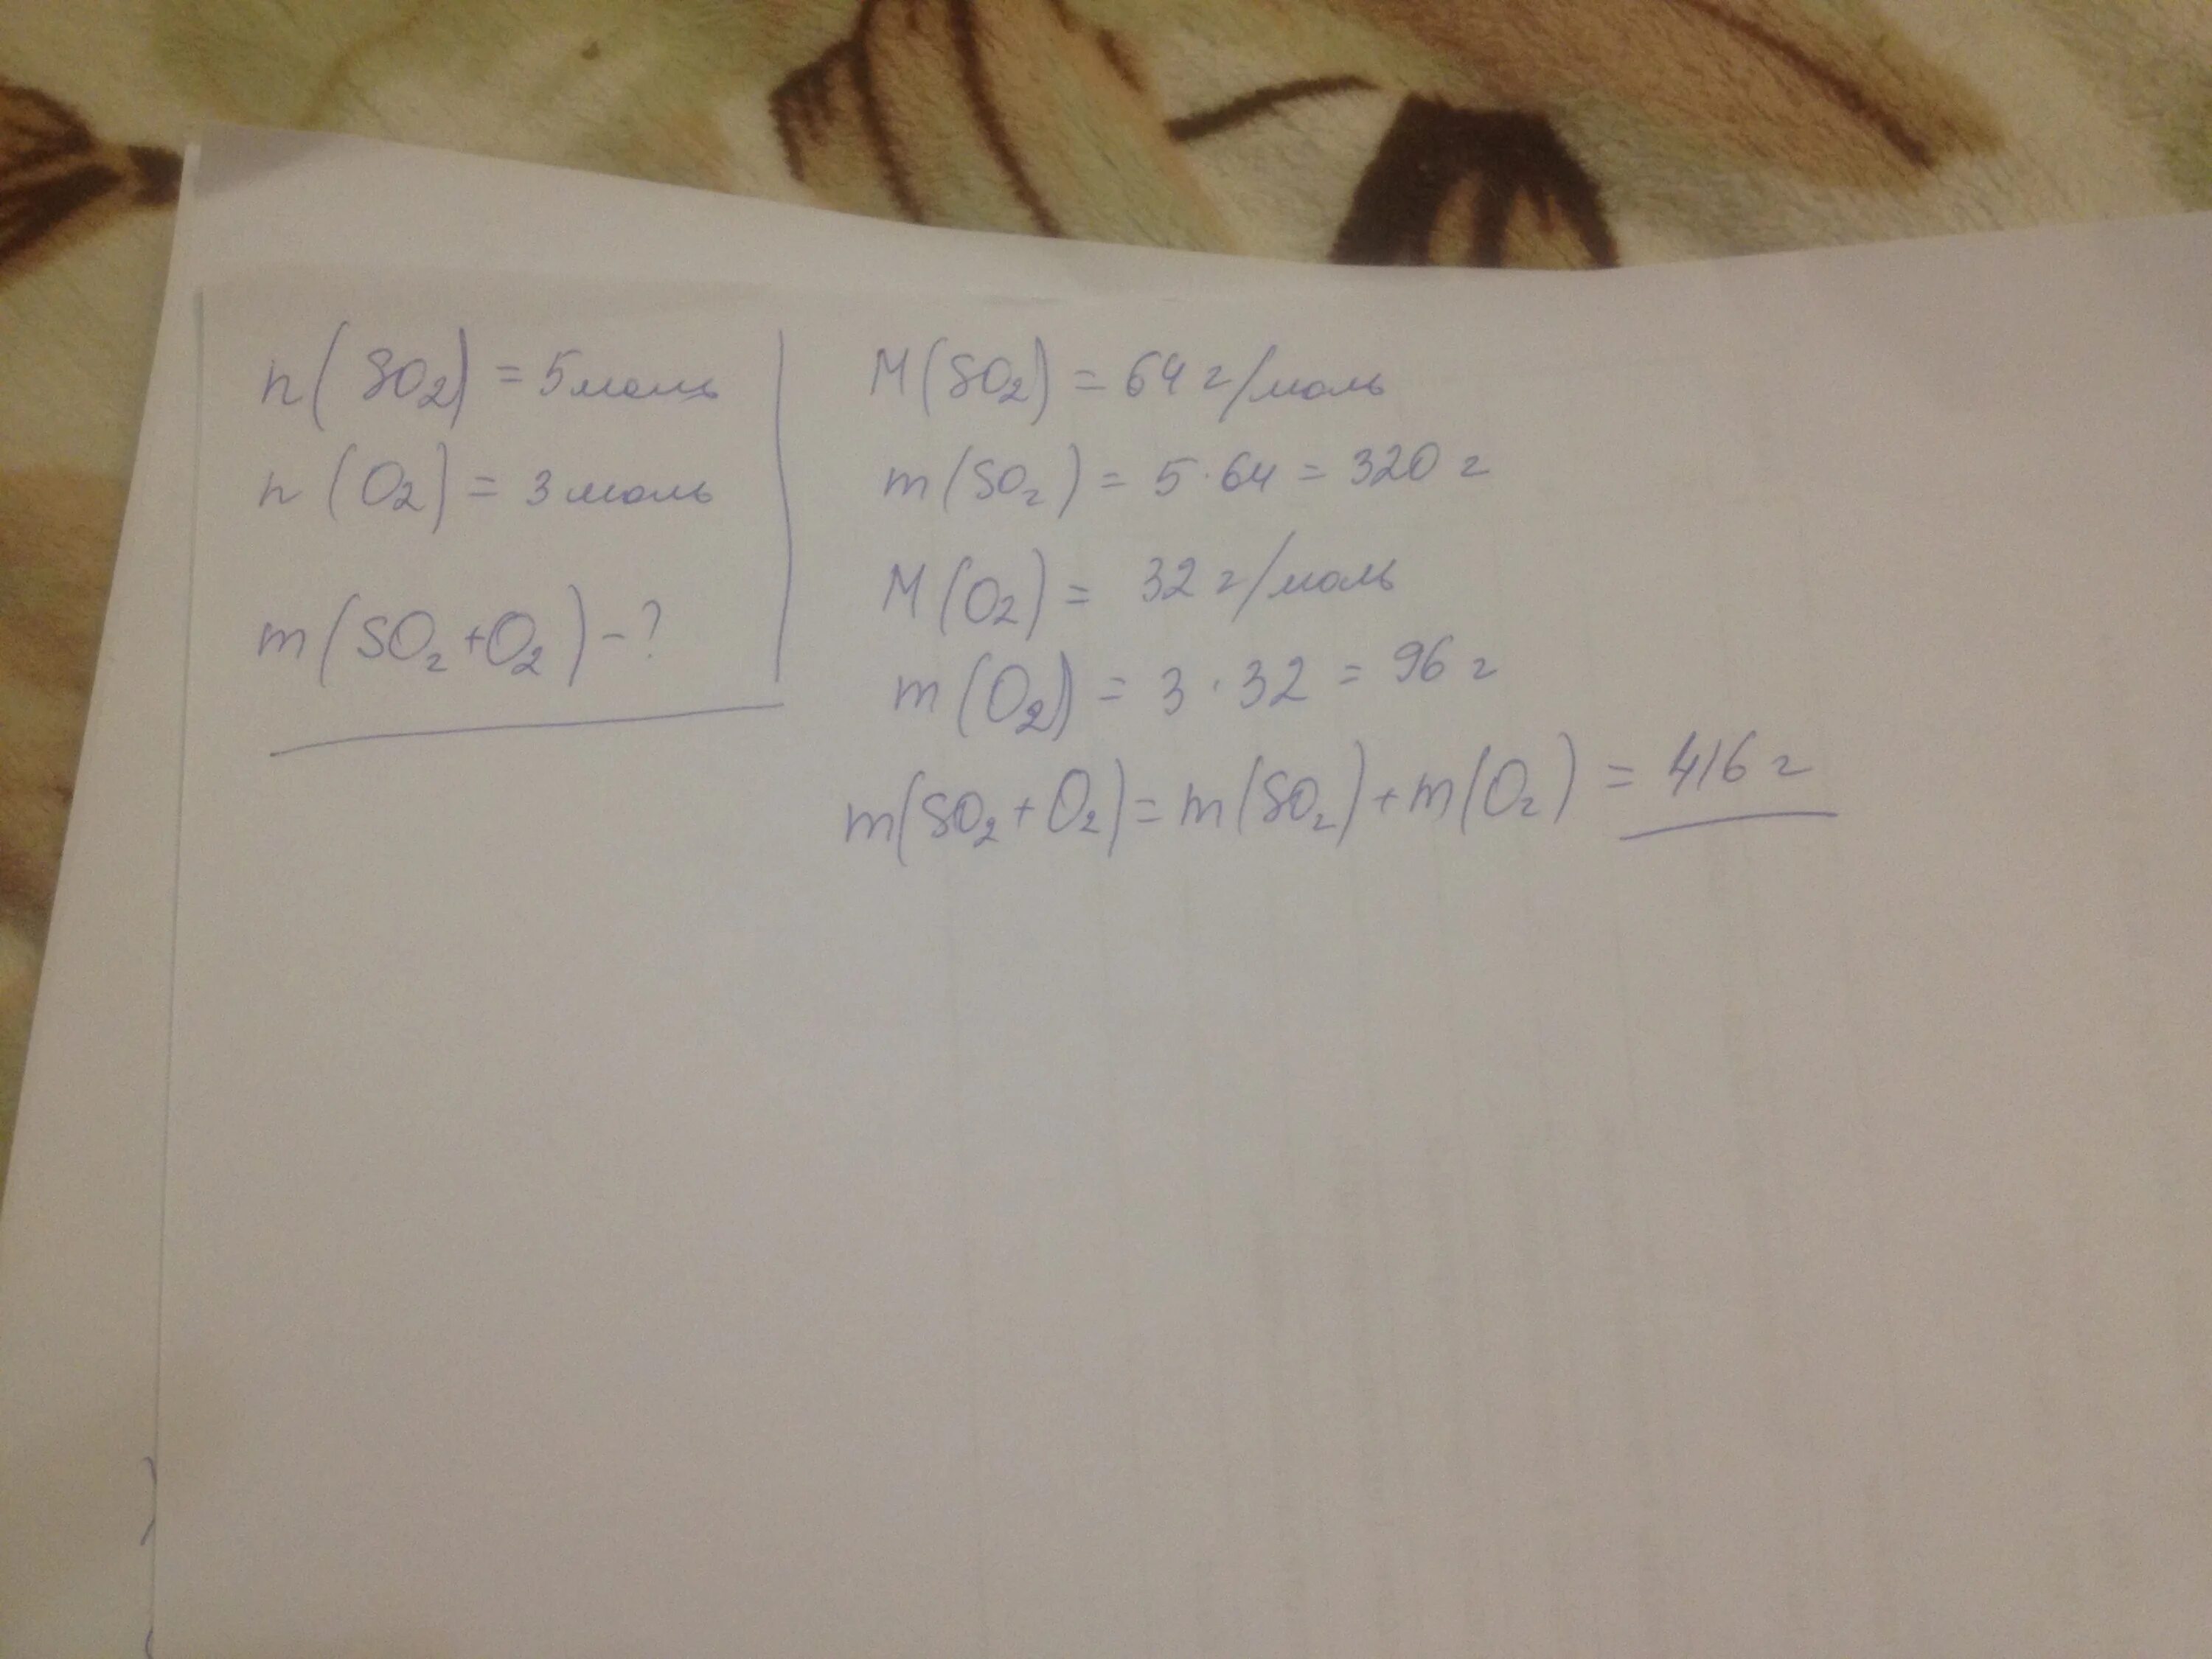 n(SO₂) = 5 моль
n(O₂) = 3 моль
m(SO₂+O₂) – ?
M(SO₂) = 64 г/моль
m(SO₂) = 5·64 = 320 г
M(O₂) = 32 г/моль
m(O₂) = 3·32 = 96 г
m(SO₂+O₂) = m(SO₂)+m(O₂) = 416 г